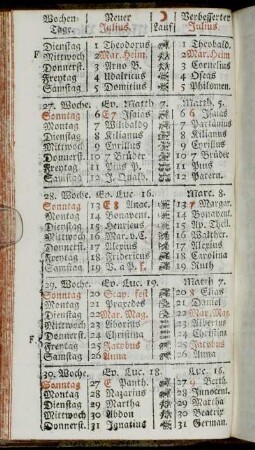 Wochen Neuer Verbesserter
Tage. Julius. Lauf Julius.
Dienstag 1 Theodorus 1 Theobald.
F Mittwoch 2 Mar. Heim. 2 Mar. Heim
Donnerst. 3 3 Cornelius
Freytag 4 Udalricus 4 Oseas
Samstag 5 Domitius 5 Philomen.
27. Woche. Ev. Matth 7. Matth. 5.
Sonntag 6 E 7 Isaias 6 6 Isaias
Montag 7 Willibald 7
Dienstag 8 Kilianus 8 Kilianus
Mittwoch 9 Cyrillus 9 Cyrillus
Donnerst. 10 7 Brüder 10 7 Brüder
Freytag 11 Pius P. 11 Pius
Samstag 12 12
28. Woche. Ev. Luc 16. Marc. 8.
Sonntag 13 E 8 Anac. 13 7 Margar.
Montag 14 Bonavent. 14 Bonavent.
Dienstag 15 Henricus 15 Ap. Theil.
Mittwoch 16 Mar. v. C. 16 Walther.
Donnerst. 17 Alexius 17 Alexius
Freytag 18 Fridericus 18 Carolina
Samstag 19 19 Ruth
29. Woche. Ev. Luc. 19. Matth 7.
Sonntag 20 Scap. fest 20 8 Elias
Montag 21 Praxedes 21 Daniel
Dienstag 22 Mar. Mag. 22 Mar. Mag.
Mittwoch 23 Liborius 23
Donnerst. 24 Christina 24 Christina
F Freytag 25 Jacobus 25 Jacobus
Samstag 26 Anna 26 Anna
30. Woche. Ev. Luc. 18. Luc. 16.
Sonntag 27 E Panth. 27 9. Berth.
Montag 28 Nazarius 28 Innocent.
Dienstag 29 Martha 29 Martha
Mittwoch 30 Abdon 30 Beatrix
Donnerst. 31 Ignatius 31 German.